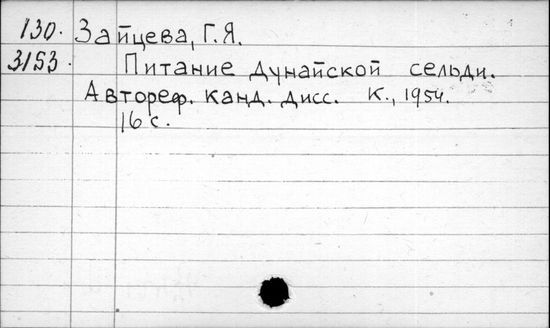 130. Зайцева, Г.Я.
3153. Питание дунайской сельди.
Автореф. канд. дисс. К., 1954.
16 с.